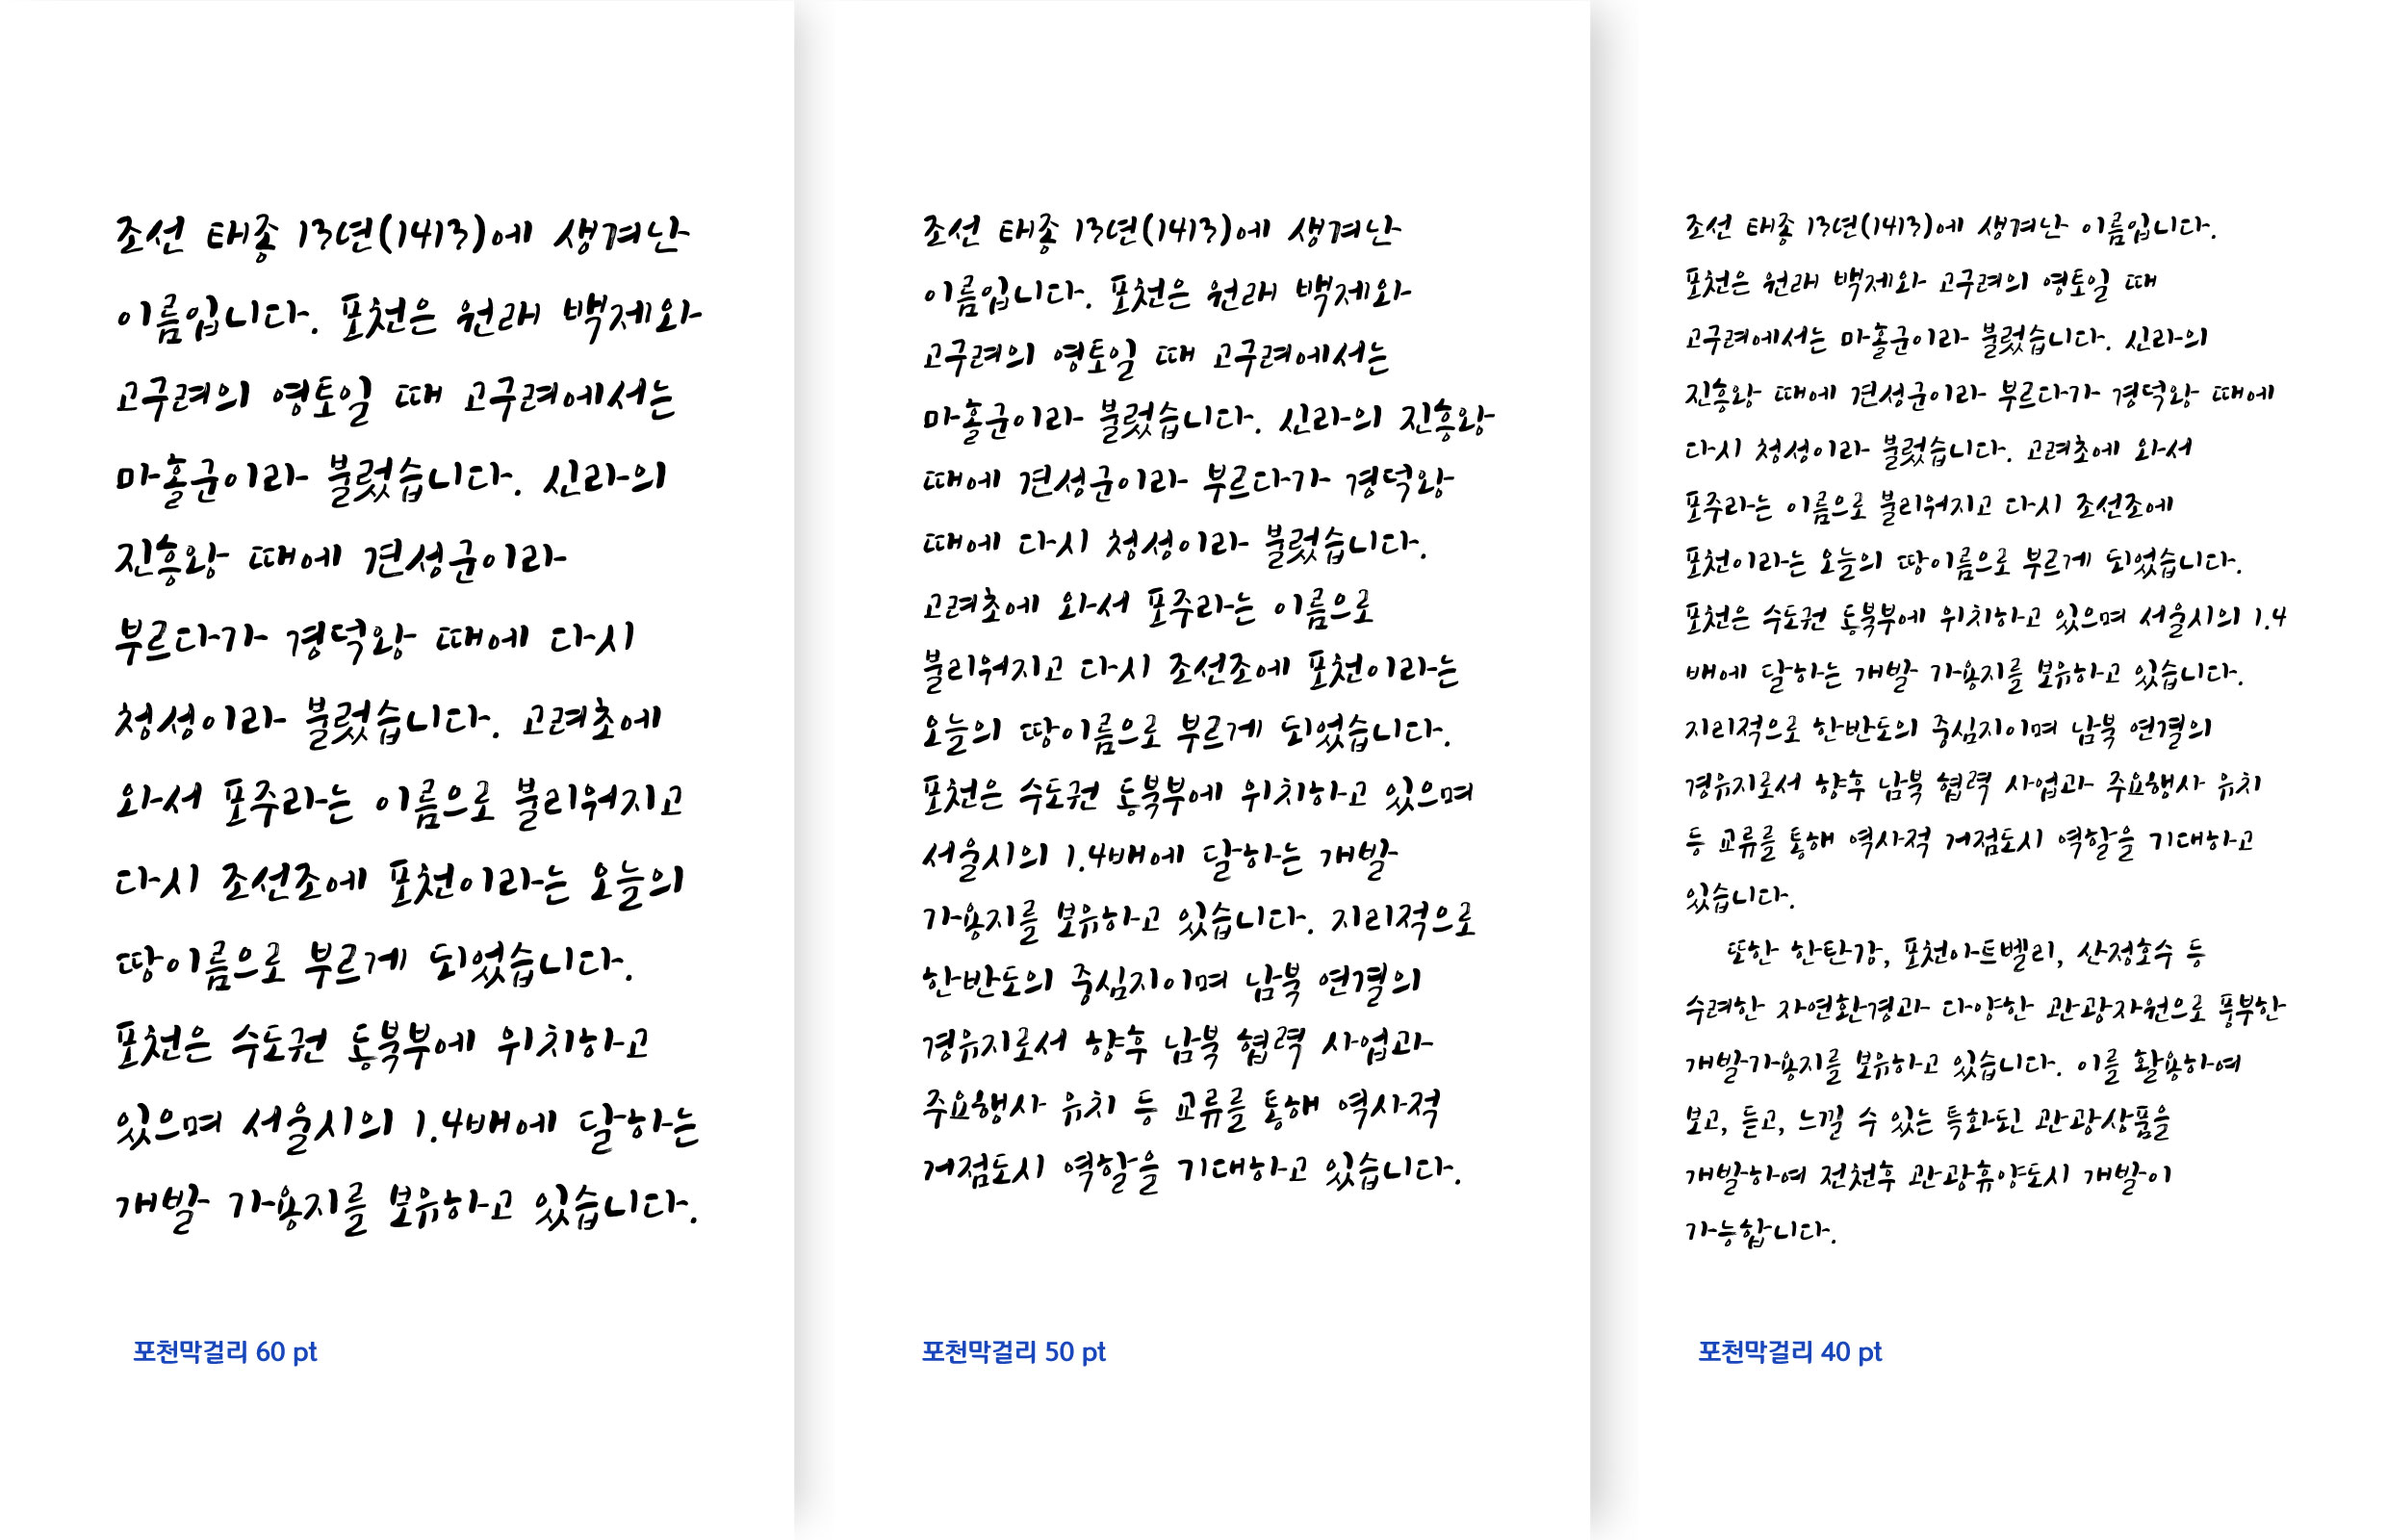 조선 태종 13년(1413)에 생겨난
이름입니다. 포천은 원래 백제와
고구려의 영토일 때 고구려에서는
마홀군이라 불렀습니다. 신라의
진흥왕 때에 견성군이라
부르다가 경덕왕 때에 다시
청성이라 불렀습니다. 고려초에
와서 포주라는 이름으로 불리워지고
다시 조선조에 포천이라는 오늘의
땅이름으로 부르게 되었습니다.
포천은 수도권 동북부에 위치하고
있으며 서울시의 1.4배에 달하는
개발 가용지를 보유하고 있습니다.
포천막걸리 60 pt
조선 태종 13년(1413)에 생겨난
이름입니다. 포천은 원래 백제와
고구려의 영토일 때 고구려에서는
마홀군이라 불렀습니다. 신라의 진흥왕
때에 견성군이라 부르다가 경덕왕
때에 다시 청성이라 불렀습니다.
고려초에 와서 포주라는 이름으로
불리워지고 다시 조선조에 포천이라는
오늘의 땅이름으로 부르게 되었습니다.
포천은 수도권 동북부에 위치하고 있으며
서울시의 1.4배에 달하는 개발
가용지를 보유하고 있습니다. 지리적으로
한반도의 중심지이며 남북 연결의
경유지로서 향후 남북 협력 사업과
주요행사 유치 등 교류를 통해 역사적
거점도시 역할을 기대하고 있습니다.
포천막걸리 50 pt
조선 태종 13년(1413)에 생겨난 이름입니다.
포천은 원래 백제와 고구려의 영토일 때
고구려에서는 마홀군이라 불렀습니다. 신라의
진흥왕 때에 견성군이라 부르다가 경덕왕 때에
다시 청성이라 불렀습니다. 고려초에 와서
포주라는 이름으로 불리워지고 다시 조선조에
포천이라는 오늘의 땅이름으로 부르게 되었습니다.
포천은 수도권 동북부에 위치하고 있으며 서울시의 1.4
배에 달하는 개발 가용지를 보유하고 있습니다.
지리적으로 한반도의 중심지이며 남북 연결의
경유지로서 향후 남북 협력 사업과 주요행사 유치
등 교류를 통해 역사적 거점도시 역할을 기대하고
있습니다.
또한 한탄강, 포천아트벨리, 산정호수 등
수려한 자연환경과 다양한 관광자원으로 풍부한
개발가용지를 보유하고 있습니다. 이를 활용하여
보고, 듣고, 느낄 수 있는 특화된 관광상품을
개발하여 전천후 관광휴양도시 개발이
가능합니다.
포천막걸리 40 pt